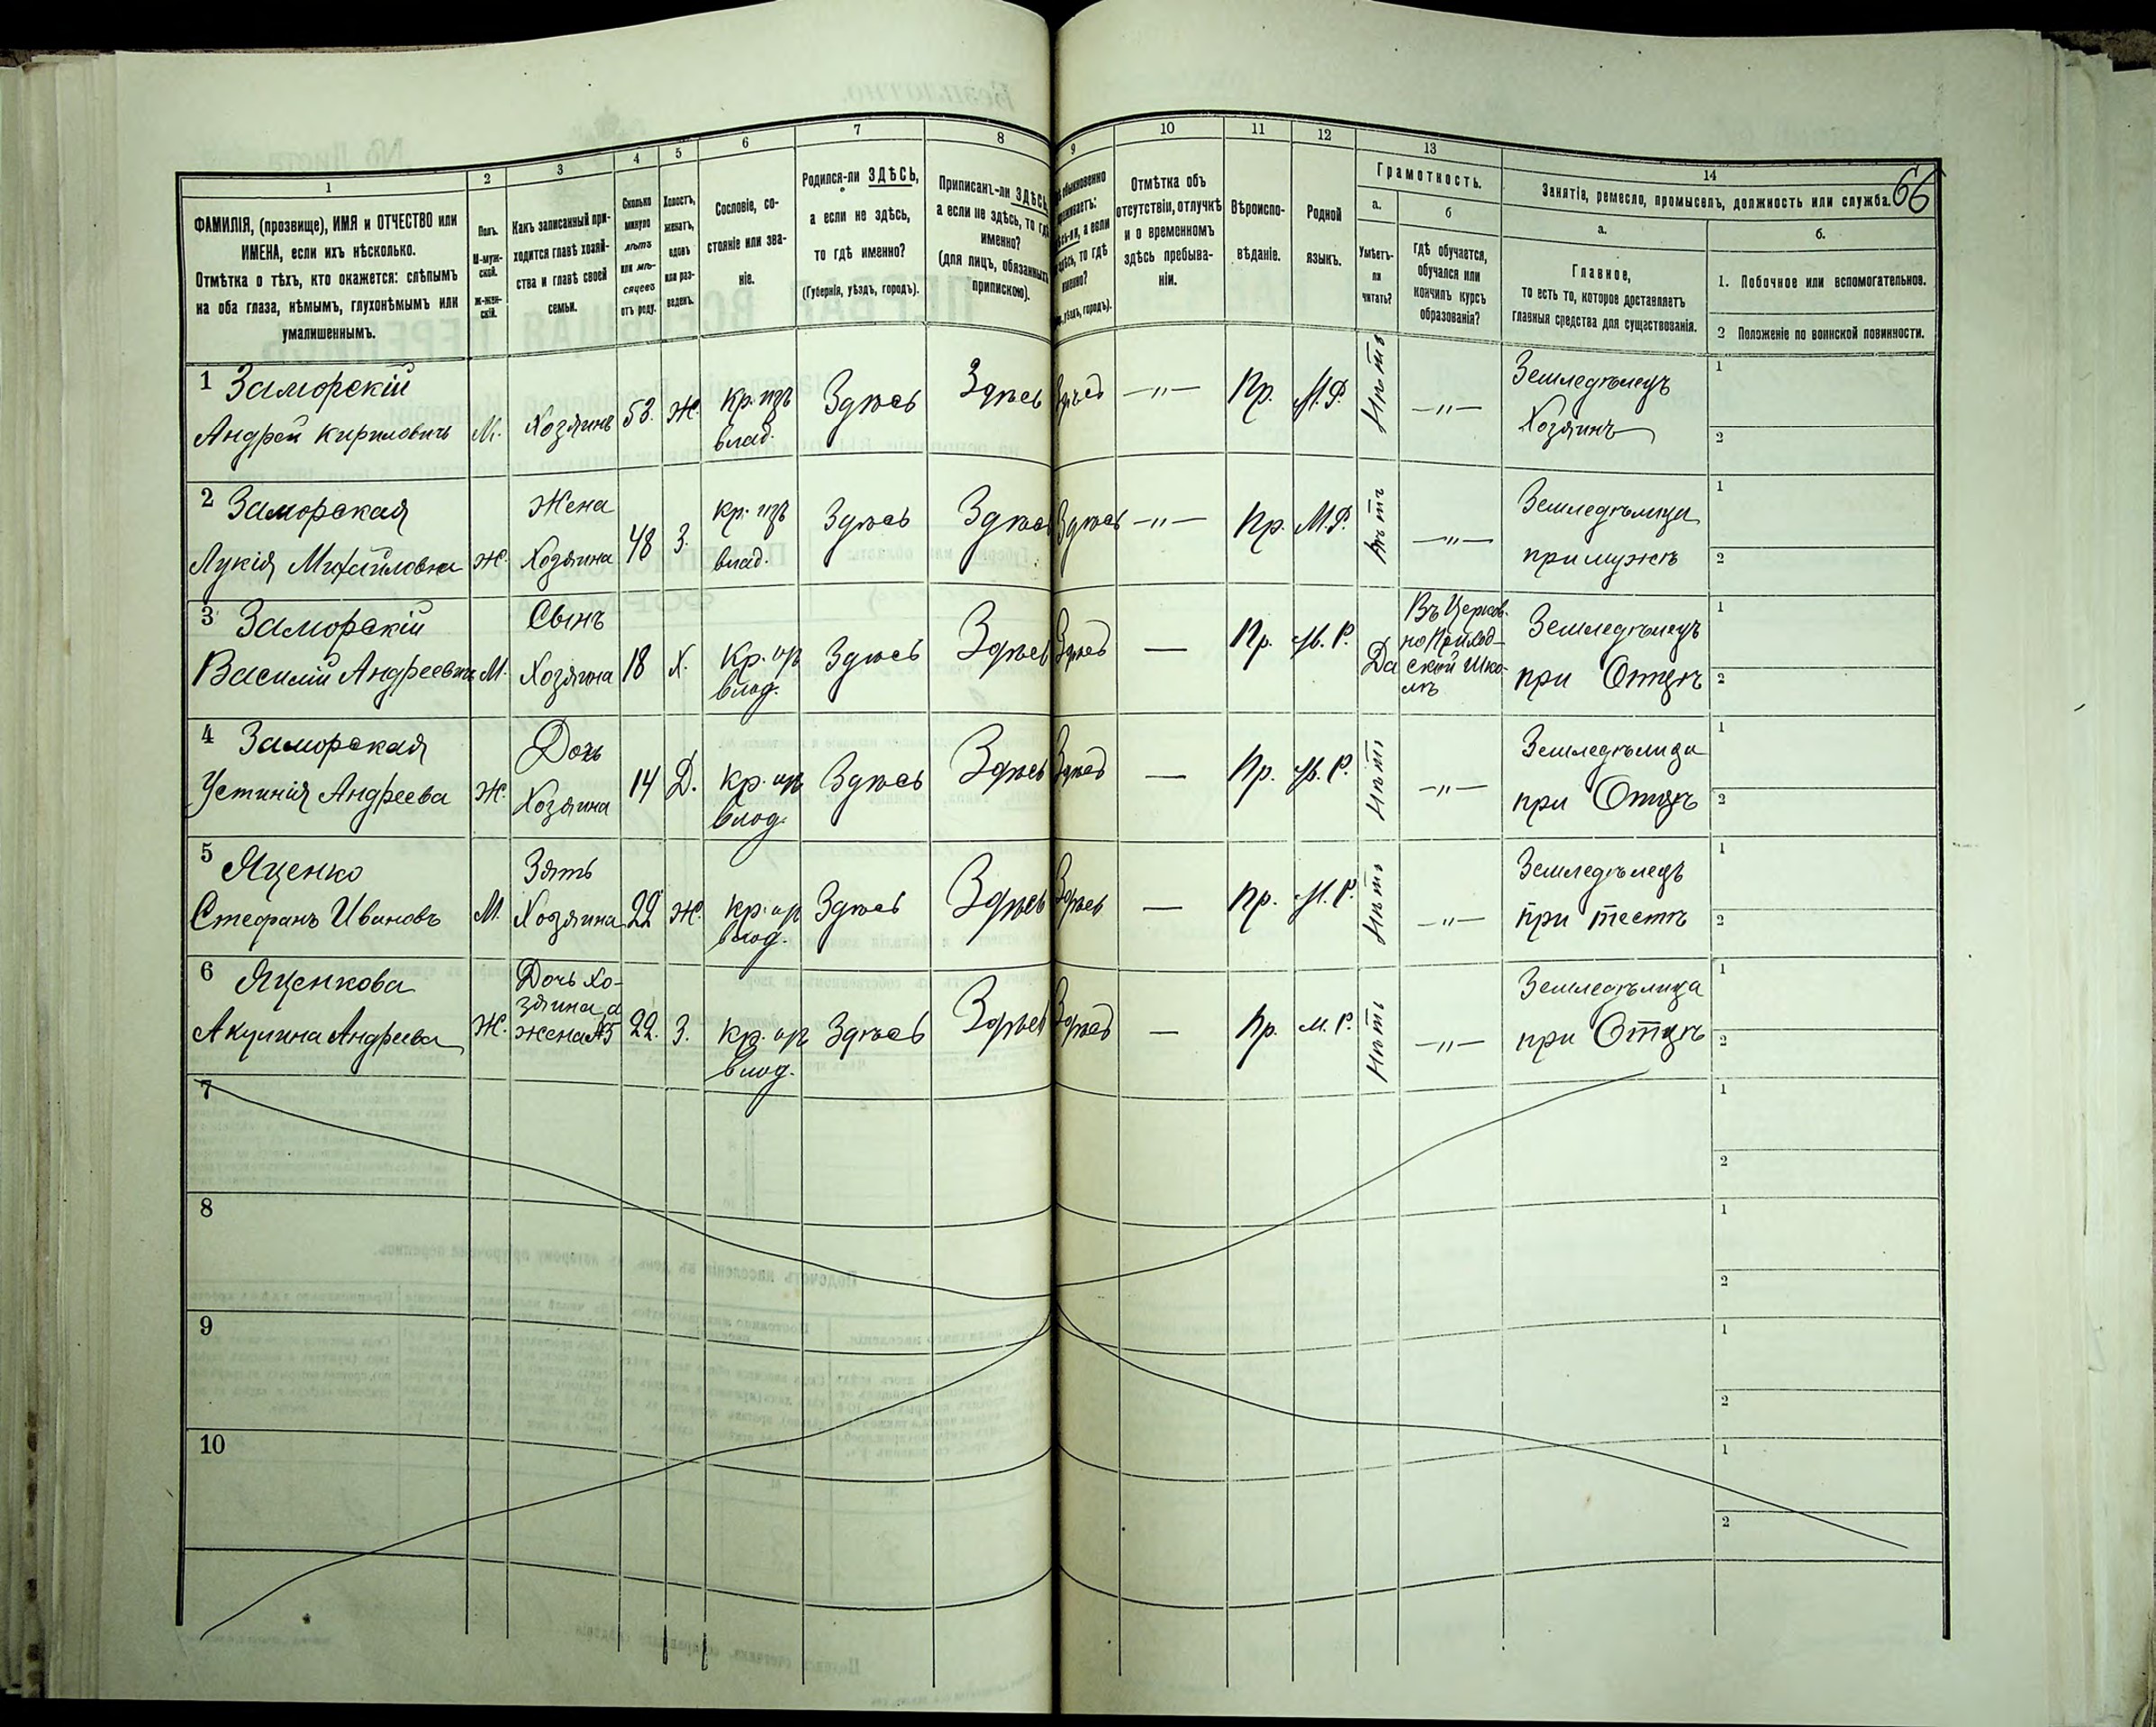 66
1
2
3
4
5
6
7
8
9
10
11
12
13
14
ФАМИЛІЯ, (прозвище), ИМЯ и ОТЧЕСТВО или
ИМЕНА, если ихъ нѣсколько.
Отмѣтка о тѣхъ, кто окажется: слѣпымъ
на оба глаза, нѣмымъ, глухонѣмымъ или
умалишеннымъ.
Полъ.
М-муж-
ской.
Ж-жен-
скій.
Какъ записанный при-
ходится главѣ хозяй-
ства и главѣ своей
семьи.
Сколько
минуло
лѣтъ
или мѣ-
сяцевъ
отъ роду.
Холостъ,
женатъ,
вдовъ
или раз-
веденъ.
Сословіе, со-
стояніе или зва-
ніе.
Родился-ли ЗДѢСЬ,
а если не здѣсь,
то гдѣ именно?
(Губернія, уѣздъ, городъ).
Приписанъ-ли ЗДѢСЬ,
а если не здѣсь, то гдѣ
именно?
(для лицъ, обязанныхъ
припискою).
обыкновенно
а если
то гдѣ
уѣздъ, городъ).
Отмѣтка объ
отсутствіи, отлучкѣ
и о временномъ
здѣсь пребыва-
ніи.
Вѣроиспо-
вѣданіе.
Родной
языкъ.
Грамотность.
а.
Умѣетъ-
ли
читать?
б
гдѣ обучается,
обучался или
кончилъ курсъ
образованія?
Занятія, ремесло, промыселъ, должность или служба.
а.
Главное,
то есть то, которое доставляетъ
главныя средства для существованія.
б.
1. Побочное или вспомогательное.
2 Положеніе по воинской повинности.
1 Заморскій
Андрей Кириловичъ М. Хозяинъ 53. Ж. Кр. изъ влад. Здѣсь Здѣсь Здѣсь —"— Пр. М.Р. Нѣтъ —"— Земледѣлецъ
Хозяинъ 1 2
2 Заморская Жена
Лукія Михайловна Ж. Хозяина 48 З. Кр. изъ влад. Здѣсь Здѣсь Здѣсь —"— Пр. М.Р. Нѣтъ —"— Земледѣлица
при мужѣ 1 2
3 Заморскій Сынъ
Василій Андреевичъ М. Хозяина 18 Х. Кр. изъ влад. Здѣсь Здѣсь Здѣсь — Пр. М. Р. Да Въ Церков-
но Приход-
ской Шко-
лѣ Земледѣлецъ
при Отцѣ 1 2
4 Заморская Дочь
Устинія Андреева Ж. Хозяина 14 Д. Кр. изъ влад. Здѣсь Здѣсь Здѣсь — Пр. М. Р. Нѣтъ —"— Земледѣлица
при Отцѣ 1 2
5 Яценко Зять
Стефанъ Ивановъ М. Хозяина 22 Ж. Кр. изъ влад. Здѣсь Здѣсь Здѣсь — Пр. М. Р. Нѣтъ —"— Земледѣлецъ
при тестѣ 1 2
6 Яценкова Дочь Хо-
зяина, а
Акулина Андреева Ж. жена №5 22. З. Кр. изъ влад. Здѣсь Здѣсь Здѣсь — Пр. М. Р. Нѣтъ —"— Земледѣлица
при Отцѣ 1 2
7 1 2
8 1 2
9 1 2
10 1 2